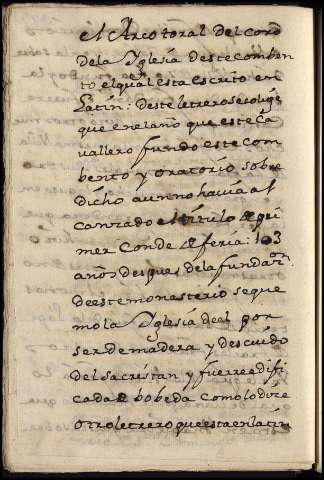 el Arco toral del coro
dela Yglesia deste comben
to elqual esta escrito en
Latin: deste letrero se colige
que en el año que este Ca
vallero fundo este com
bento y oratorio sobre
dicho aun no havia al
canzado el titulo de pri
mer Conde de feria: 103
años despues dela fundaz.on
de este monasterio se que
mo la Yglesia de el por
ser de madera y descuido
del sacristan y fue rreedifi
cada de bobeda como lo dize
otro letrero que esta en latin